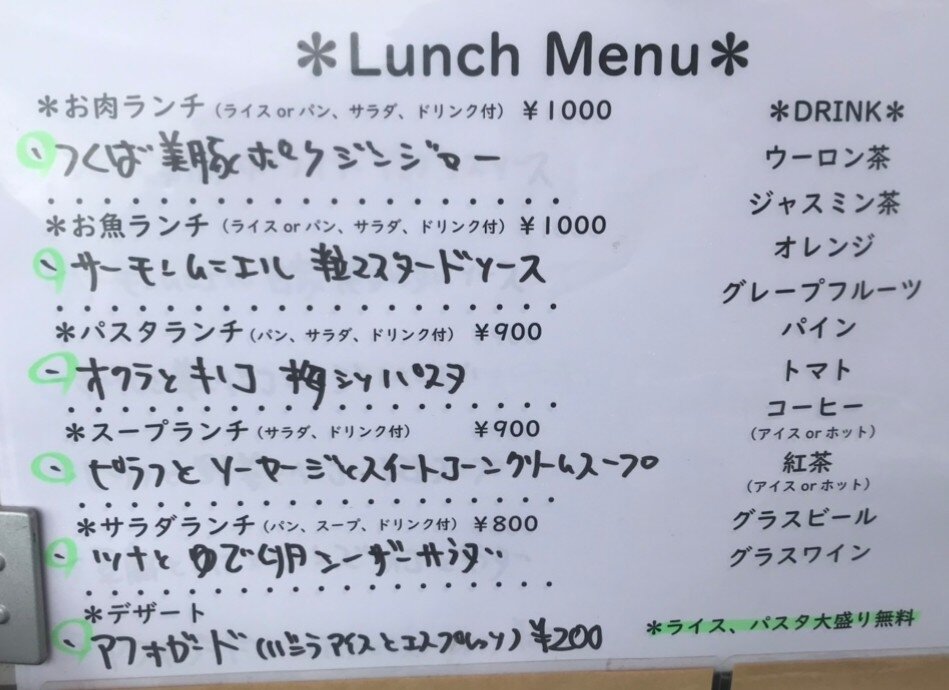 ＊Lunch Menu＊
＊お肉ランチ（ライス or パン、サラダ、ドリンク付） ￥1000
・つくば美豚ポークジンジャー
＊お魚ランチ（ライス or パン、サラダ、ドリンク付） ￥1000
・サーモンムニエル 粒マスタードソース
＊パスタランチ（パン、サラダ、ドリンク付） ￥900
・オクラとキノコ 梅シソパスタ
＊スープランチ（サラダ、ドリンク付） ￥900
・ピラフとソーセージとスイートコーンクリームスープ
＊サラダランチ（パン、スープ、ドリンク付） ￥800
・ツナとゆで卵シーザーサラダ
＊デザート
・アフォガード（バニラアイスとエスプレッソ）￥200
＊DRINK＊
ウーロン茶
ジャスミン茶
オレンジ
グレープフルーツ
パイン
トマト
コーヒー
（アイス or ホット）
紅茶
（アイス or ホット）
グラスビール
グラスワイン
＊ライス、パスタ大盛り無料